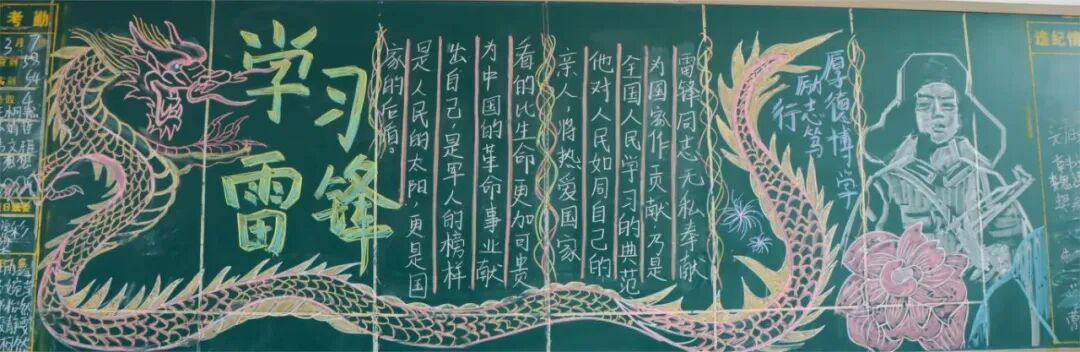 考勤
3月7
学习
雷锋
雷锋同志无私奉献
为国家作贡献,乃是
全国人民学习的典范
他对人民如同自己的
亲人,将热爱国家
看的比生命更加可贵
为中国的革命事业献
出自己,是军人的榜样
是人民的太阳,更是国
家的后盾。
厚德博学
励志笃
行
违纪情